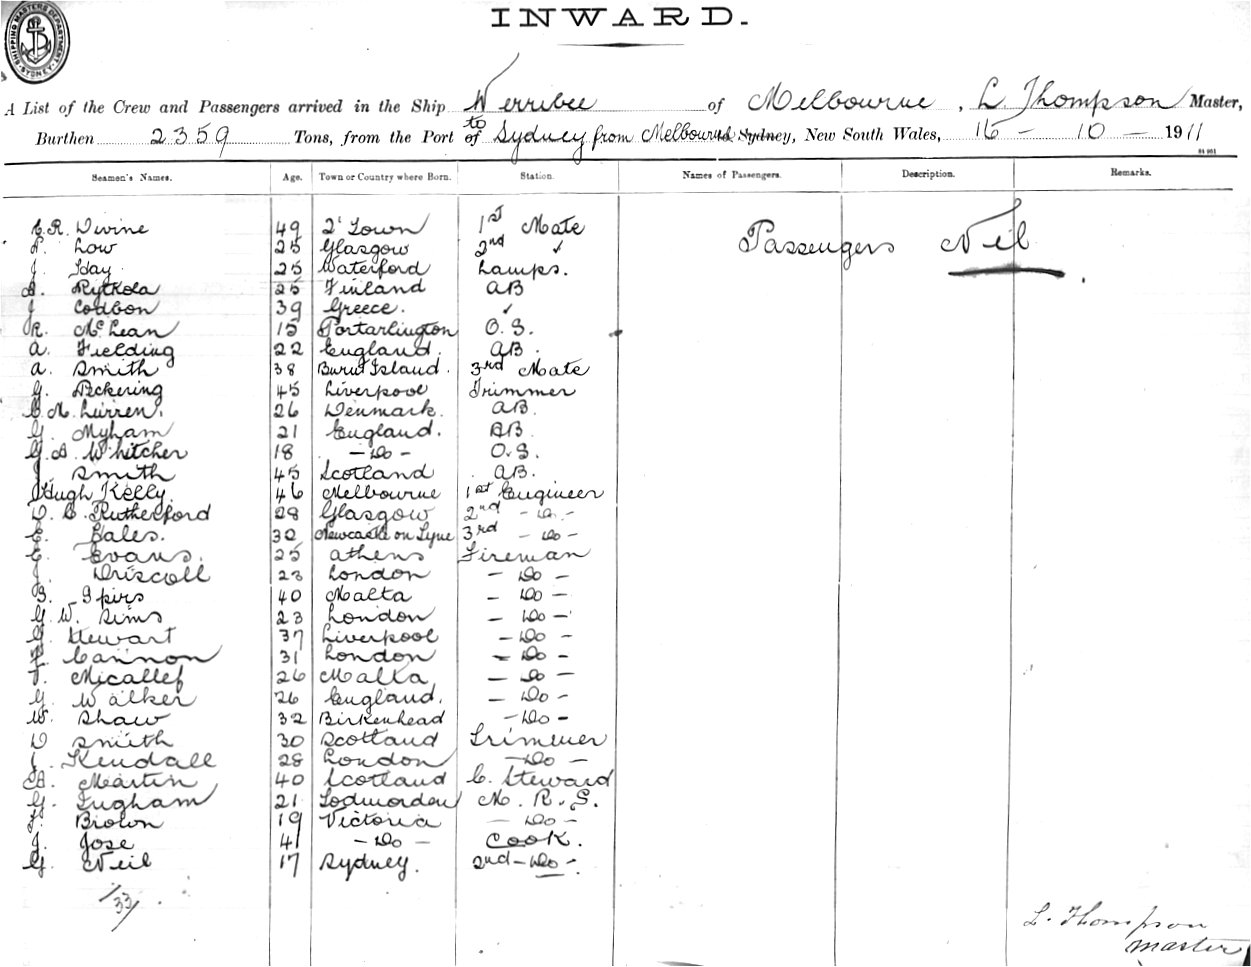 SHIPPING MASTERS DEPARTMENT SYDNEY
INWARD.
A List of the Crew and Passengers arrived in the Ship Werribee of Melbourne, L. Thompson Master,
Burthen 2359 Tons, from the Port of to Sydney from Melbourne Sydney, New South Wales, 16 - 10 - 1911
Seamen's Names. Age. Town or Country where Born. Station. Names of Passengers. Description. Remarks.
C.R. Divine 49 Town 1st Mate
Low 25 Glasgow 2nd ✓ Passengers Nil
J. 25 Waterford Lamps.
Rytkola 25 Finland AB
J 39 Greece. ✓
R. McLean 15 Portarlington O.S.
A. Fielding 22 England. AB.
A. Smith 38 Island. 3rd Mate
G. Pickering 45 Liverpool Trimmer
26 Denmark. AB.
G. Myham 21 England. AB.
G.A. Whitcher 18 - Do - O.S.
J. Smith 45 Scotland AB.
Hugh Kelly. 46 Melbourne 1st Engineer
D. C. Rutherford 28 Glasgow 2nd - Do -
E. 30 Newcastle on Tyne 3rd - Do -
E. Evans. 25 Athens Fireman
J. Driscoll 23 London - Do -
40 Malta - Do -
G. W. Sims 23 London - Do -
G. Stewart 37 Liverpool - Do -
Cannon 31 London - Do -
Micallef 26 Malta - Do -
G. Walker 26 England. - Do -
W. Shaw 32 Birkenhead - Do -
D Smith 30 Scotland Trimmer
Kendall 28 London - Do -
Martin 40 Scotland C. Steward
G. Ingham 21 Todmorden M. R. S.
Brown 19 Victoria - Do -
J. Jose 41 - Do - Cook.
G. Neil 17 Sydney. 2nd - Do -
/33/
L. Thompson
master